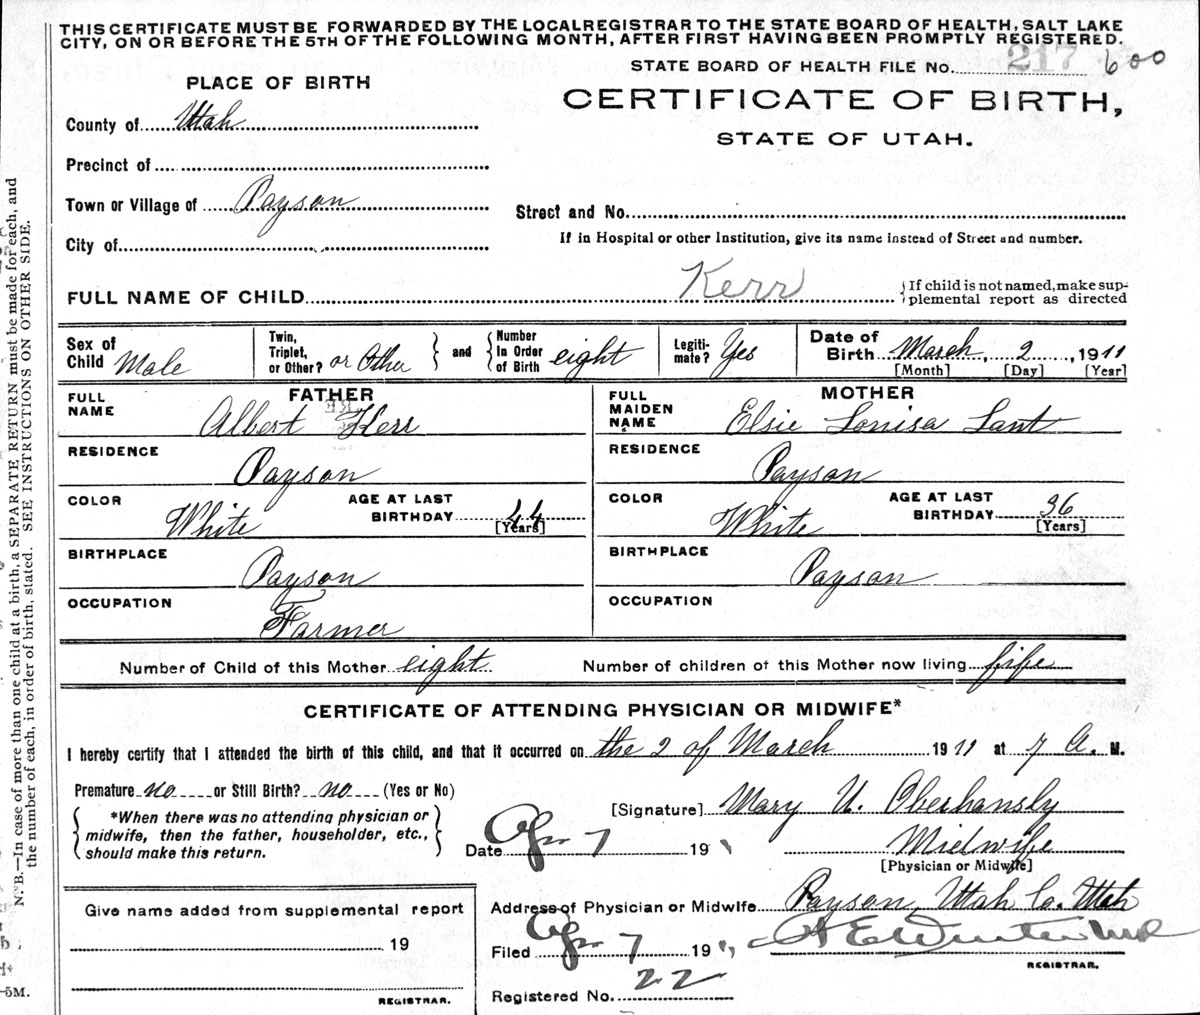 THIS CERTIFICATE MUST BE FORWARDED BY THE LOCAL REGISTRAR TO THE STATE BOARD OF HEALTH, SALT LAKE
CITY, ON OR BEFORE THE 5TH OF THE FOLLOWING MONTH, AFTER FIRST HAVING BEEN PROMPTLY REGISTERED.
STATE BOARD OF HEALTH FILE No. 217 600
PLACE OF BIRTH
CERTIFICATE OF BIRTH,
STATE OF UTAH.
County of Utah
Precinct of
Town or Village of Payson
Street and No.
City of
If in Hospital or other Institution, give its name instead of Street and number.
FULL NAME OF CHILD Kerr
If child is not named, make sup-
plemental report as directed
Sex of Child Male
Twin, Triplet, or Other? or Other and Number In Order of Birth eight
Legiti-mate? Yes
Date of Birth March, 2, 1911
[Month] [Day] [Year]
FATHER
FULL NAME Albert Kerr
MOTHER
FULL MAIDEN NAME Elsie Lonisa Lant
RESIDENCE Payson
RESIDENCE Payson
COLOR White AGE AT LAST BIRTHDAY 44 [Years]
COLOR White AGE AT LAST BIRTHDAY 36 [Years]
BIRTHPLACE Payson
BIRTHPLACE Payson
OCCUPATION Farmer
OCCUPATION
Number of Child of this Mother eight Number of children of this Mother now living fife
CERTIFICATE OF ATTENDING PHYSICIAN OR MIDWIFE*
I hereby certify that I attended the birth of this child, and that it occurred on the 2 of March 1911 at 7 A. M.
Premature no or Still Birth? no (Yes or No)
*When there was no attending physician or
midwife, then the father, householder, etc.,
should make this return.
[Signature] Mary U. Oberhansly
Date Apr 7 19
Midwife
[Physician or Midwife]
Give name added from supplemental report
19
REGISTRAR.
Address of Physician or Midwife Payson, Utah Co. Utah
Filed Apr 7 19
REGISTRAR.
Registered No. 22
N. B.—In case of more than one child at a birth, a SEPARATE RETURN must be made for each, and
the number of each, in order of birth, stated. SEE INSTRUCTIONS ON OTHER SIDE.
-5M.